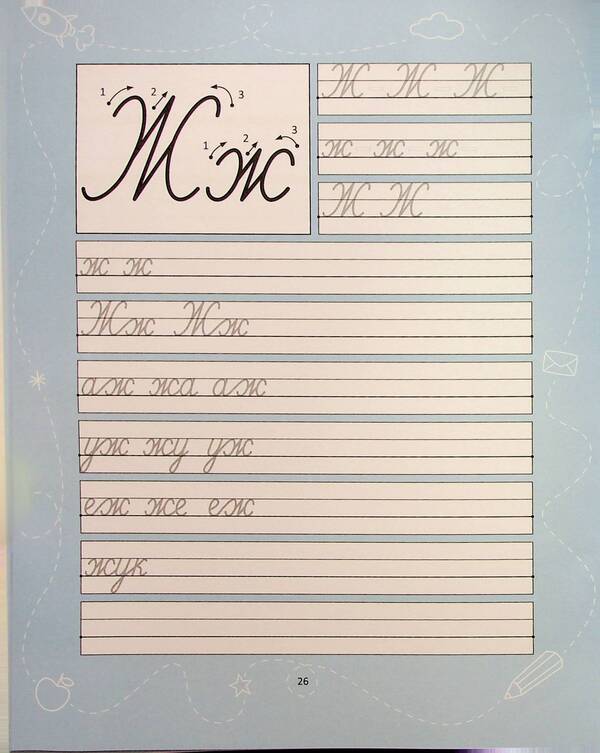 1 2 3
Ж ж
1 2 3
Ж Ж Ж
ж ж ж
Ж Ж
ж ж
Жж Жж
аж жа аж
уж жу уж
еж же еж
жук
26